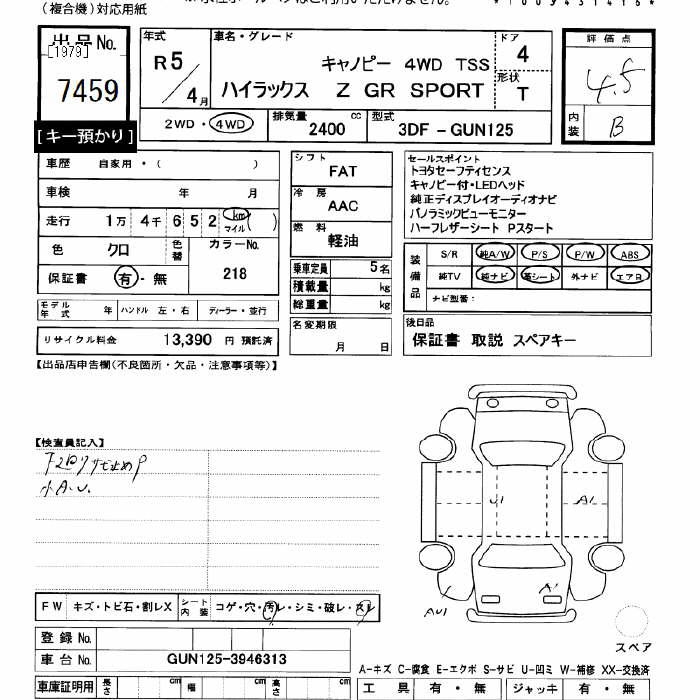 (複合機)対応用紙
出品No.
[1979]
7459
【キー預かり】
年式
R5/4月
車名・グレード
キャノピー 4WD TSS
ハイラックス Z GR SPORT
ドア
4
形状
T
評価点
4.5
内装
B
2WD・4WD
排気量
2400 cc
型式
3DF-GUN125
車歴 自家用・( )
車検 年 月
走行 1万 4千 6 5 2 km マイル ( )
色 クロ 色替 カラーNo. 218
保証書 有・無
モデル年式 年 ハンドル 左・右 ディーラー・並行
リサイクル料金 13,390 円 預託済
シフト
FAT
冷房
AAC
燃料
軽油
乗車定員 5名
積載量 kg
総重量 kg
名変期限
月 日
セールスポイント
トヨタセーフティセンス
キャノピー付・LEDヘッド
純正ディスプレイオーディオナビ
パノラミックビューモニター
ハーフレザーシート Pスタート
装備品
S/R 純A/W P/S P/W ABS
純TV 純ナビ 革シート 外ナビ エアB
ナビ型番:
後日品
保証書 取説 スペアキー
【出品店申告欄(不良箇所・欠品・注意事項等)】
【検査員記入】
小A.U.
U1
A1
A1
AU1
FW キズ・トビ石・割レX シート内装 コゲ・穴・汚レ・シミ・破レ・スレ
登録No.
車台No. GUN125-3946313
スペア
A-キズ C-腐食 E-エクボ S-サビ U-凹ミ W-補修 XX-交換済
車庫証明用 長さ cm 幅 cm 高さ cm
工具 有・無 ジャッキ 有・無